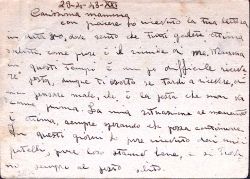 23-4-43-XXI
Carissima mamma
con piacere ho ricevuto la tua lettera
in data 200, dove sento che tutti godete ottima
salute come pure è il simile di me, Mamma
questi tempi è un po difficile ricevere
posta, dunque ti esorto se tardi a ricevere, di
non pensare male, che è la posta che non va
come prima. La mia situazione al momento
è ottima, sempre sperando che possa continuare.
In questi giorni ho pure ricevuto dai miei
fratelli, pure loro stanno bene, e si trovano
sempre al posto solito.